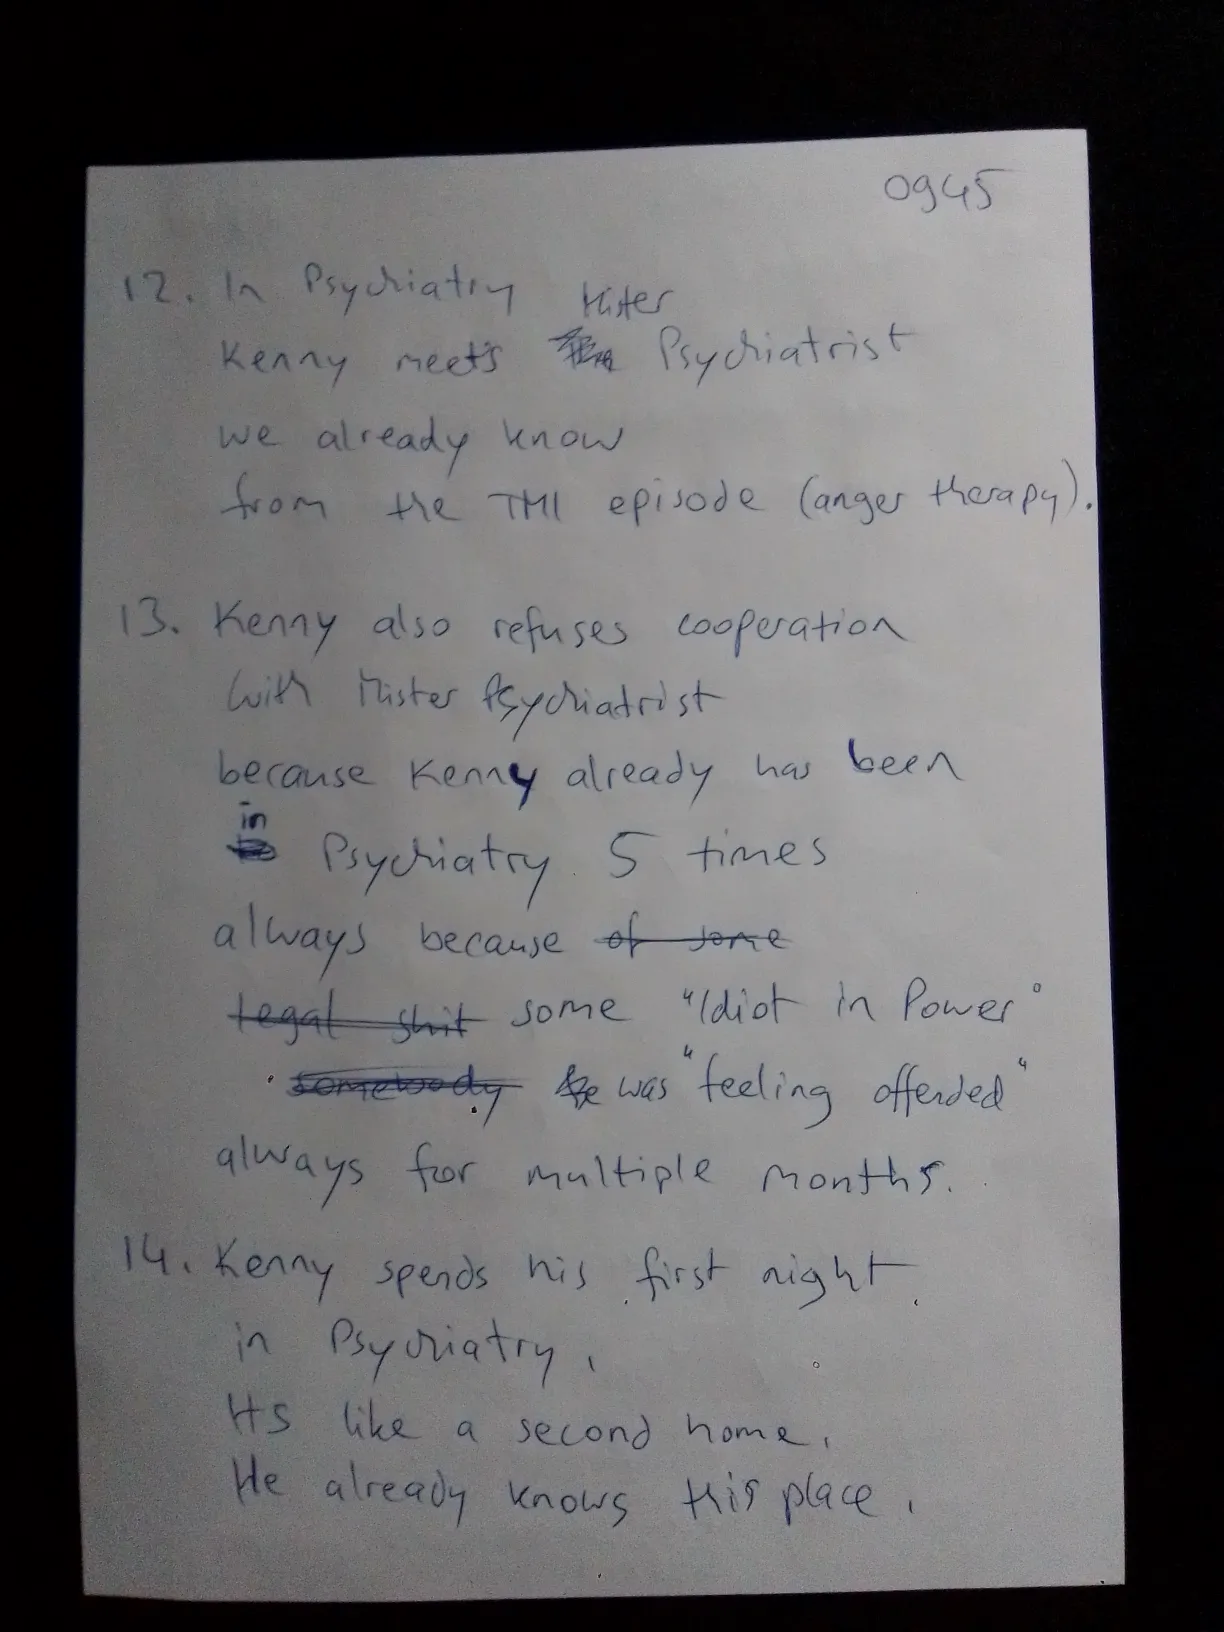 0945
12. In Psychiatry
Mister
Kenny meets Psychiatrist
we already know
from the TMI episode (anger therapy).
13. Kenny also refuses cooperation
with Mister Psychiatrist
because Kenny already has been
in
Psychiatry 5 times
always because of some
legal shit some "Idiot in Power"
somebody was "feeling offended"
always for multiple months.
14. Kenny spends his first night
in Psychiatry.
Its like a second home.
He already knows this place.